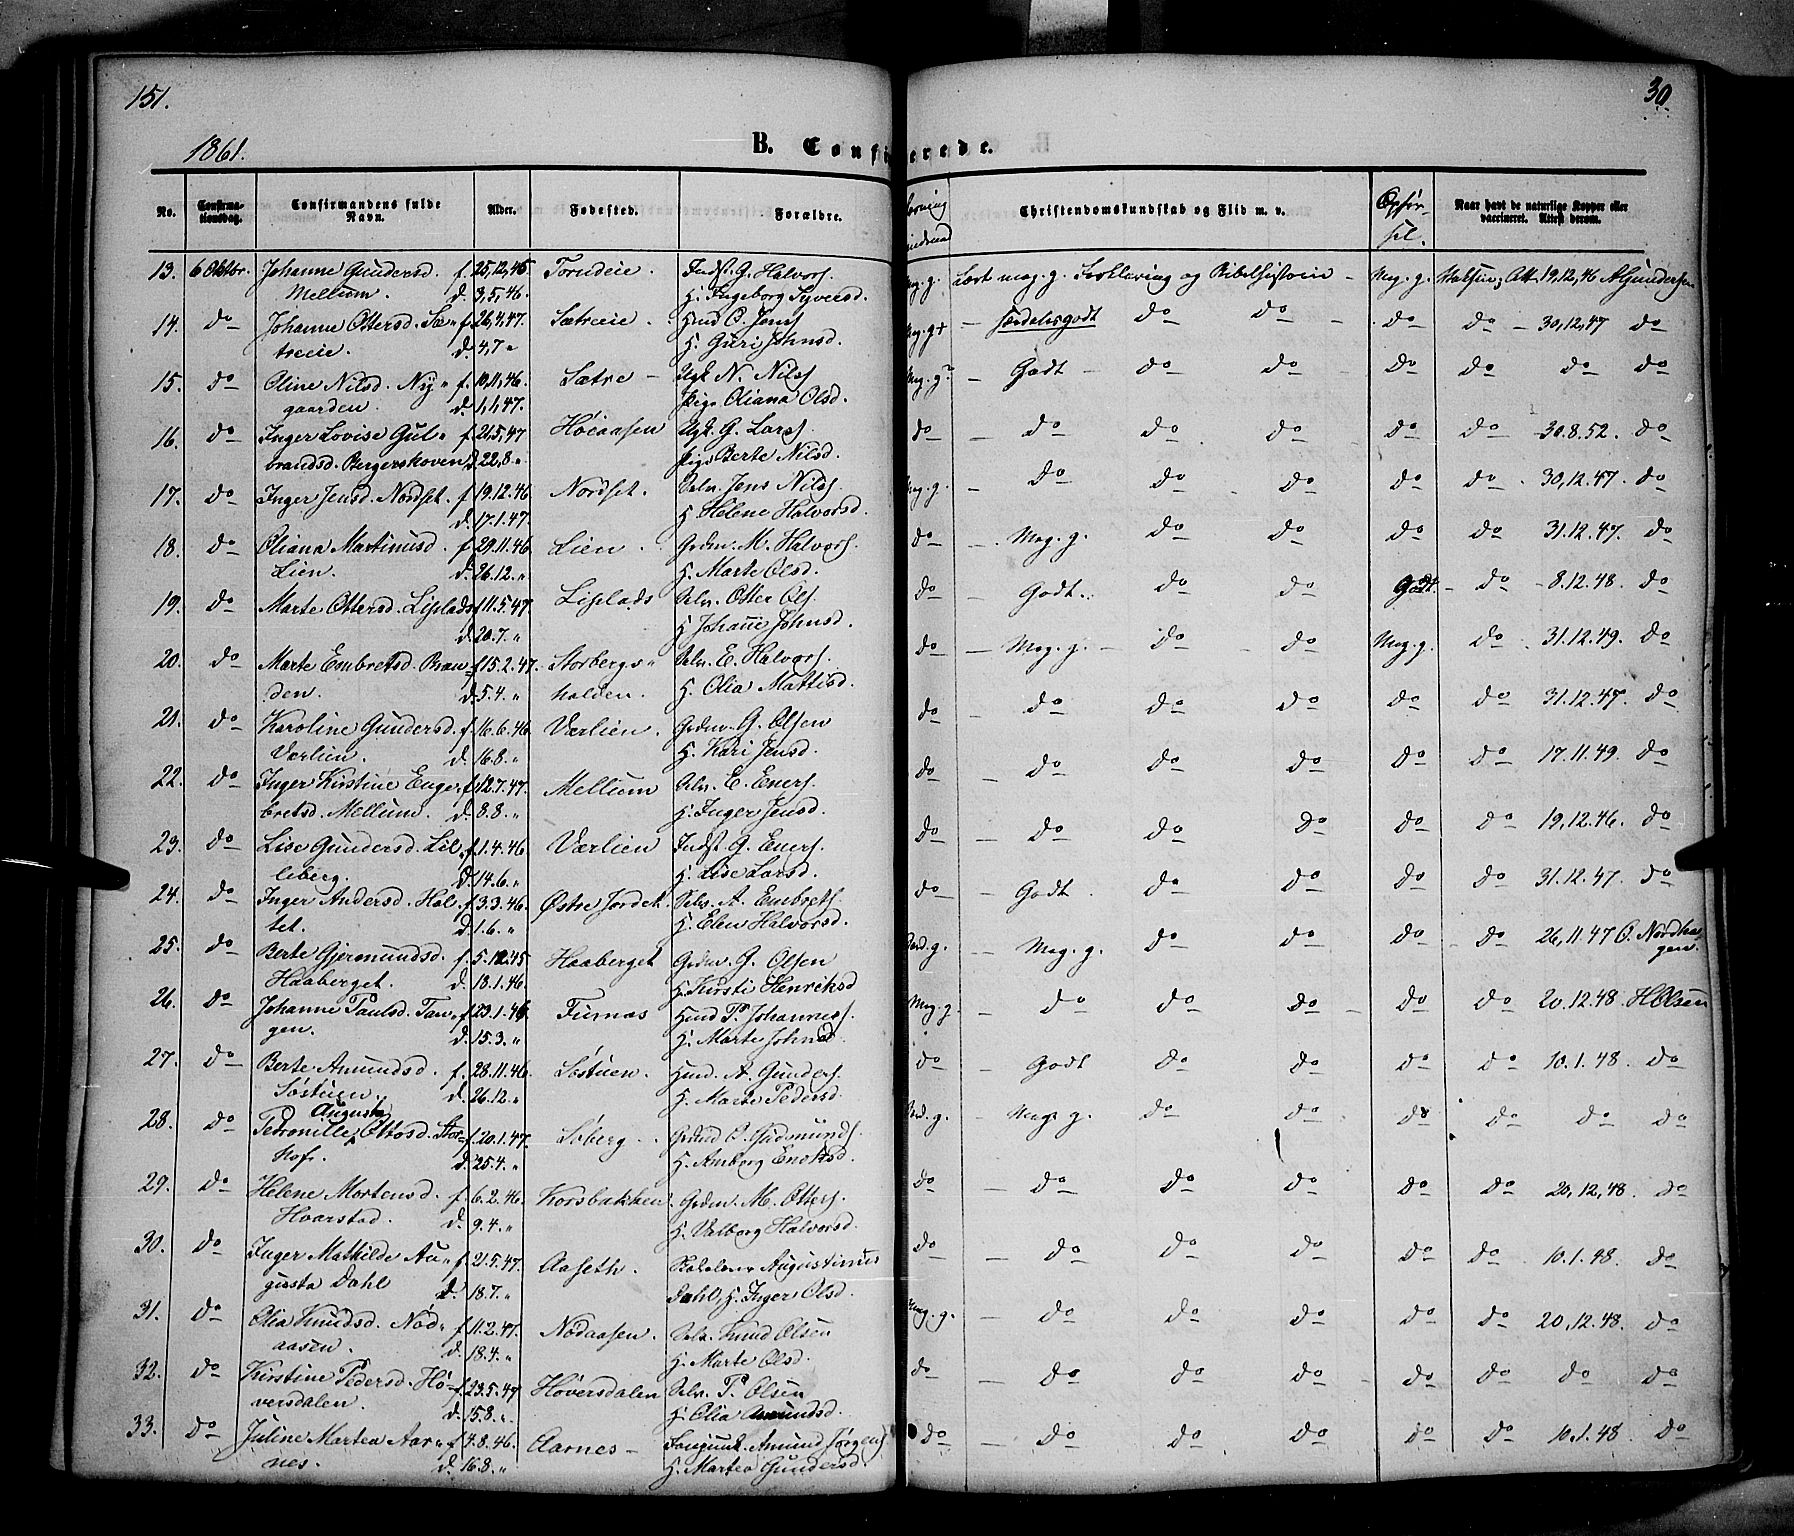 151.
30.
1861.
B. Confirmerede.
No.
Confirma-
tionsdag.
Confirmandens fulde
Navn.
Alder.
Fødested.
Forældre.
Christendomskundskab og Flid m. v.
Opfør-
sel.
Naar havt de naturlige Kopper eller
vaccineret. Attest derom.
13. 6 Oktbr. Johanne Gundersd. f. 25,12,45 Torudeie. Indst. G. Halvors. Meg. g. Læst meg. g. Forklaring og Bibelhistorie Meg. g. Att. 19,12,46 A Gundersen
Mellum. d. 3,5,46. H. Ingeborg Syversd.
14. do Johanne Ottersd. Sæ- f. 26,4,47. Sætreeie. Hmd O. Jens. Meg. g+ særdelesgodt do do do do 30,12,47 do
treeie. d. 4,7 " H. Guri Johnsd.
15. do Oline Nilsd. Ny- f. 10,11,46. Sætre Ugk N. Nils. Meg. g. Godt do do do do do do
gaarden. d. 1,1,47. Pige Oliana Olsd.
16. do Inger Lovise Gul- f. 21,5,47 Høiaasen Ugk. G. Lars. do do do do do do 30.8.52. do
brandsd. Bergerskoven d. 22,8. " Pige Berte Nilsd.
17. do Inger Jensd. Nordset. f. 19.12.46 Nordset. Selv. Jens Nils. Meg. g. do do do do do 30,12.47. do
d. 17.1.47. H. Helene Halvorsd.
18. do Oliana Martinusd. f. 29.11.46. Lien. Grdm. M. Halvors. do Meg. g. do do do do 31.12.47. do
Lien. d. 26.12. " H. Marte Olsd.
19. do Marte Ottersd. Lisplads f. 11.5.47. Lisplads Selv. Otter Ols. do Godt. do do Godt do 8.12.48. do
d. 20.7. " H. Johanne Johnsd.
20. do Marte Embretsd. Bræn- f. 15.2.47. Storbergs- Selv. E. Halvors. do Meg. g. do do Meg. g. do 31.12.49. do
den. d. 5.4. " holden. H. Olia Mattisd.
21. do Karoline Gundersd. f. 16.6.46. Værlien. Grdm. G. Olsen do do do do do do 31.12.47. do
Værlien. d. 16.8. " H. Kari Jensd.
22. do Inger Kirstine Enge- f. 12.7.47. Mellum Selv. E. Eners. do do do do do do 17.11.49. do
bretsd. Mellum. d. 8.8. " H. Inger Jensd.
23. do Lise Gundersd. Lil- f. 1.4.46 Værlien Indst G. Eners. do do do do do do 19,12.46. do
leberg. d. 14.6. " H. Lise Larsd.
24. do Inger Andersd. Hol- f. 3.3.46. Østre Jordet Selv. A. Embrets. do Godt. do do do do 31.12.47. do
tet. d. 1.6. " H. Elen Halvorsd.
25. do Berte Gjermundsd. f. 5.12.45 Haaberget Grdm. G. Olsen Meg. g. do do do do 26,11.47 O. Nordha-
Haaberget. d. 18.1.46. H. Kirsti Henriksd gen.
26. do Johanne Paulsd. Tan- f. 23.1.46 Furnæs Hmd P. Johannes. Meg. g. do do do do do 20.12.48. HOlsen
gen. d. 15.3. " H. Marte Johnsd.
27. do Berte Amundsd. f. 28.11.46. Søstuen. Hmd. A. Gunders. do Godt do do do do 10.1.48. do
Søstuen. d. 26.12. " H. Marte Pedersd.
Augusta
28. do Petronille Ottosd. Stor- f. 20.1.47. Søberg. O. Gudmunds. Meg. g. do do do do do do
hof. d. 25.4. " H. Amborg
29. do Helene Mortensd. f. 6.2.46. Korsbakken. Grdm. M. Otters. do do do do do do 20,12,48. do
Haarstad. d. 9.4. " H. Valborg Halvorsd.
30. do Inger Mathilde Au- f. 21.5.47. Aaseth. Skolelærer Augustinus do do do do do do 10.1.48. do
gusta Dahl d. 18.7. " Dahl, H. Inger Olsd.
31. do Olia Knudsd. Nød- f. 11.2.47. Nødaasen. Selv. Knud Olsen Meg. g. do do do do do 20,12.48. do
aasen. d. 18.4. " H. Marte Olsd.
32. do Kirstine Pedersd. Hø- f. 23.5.47 Høversdalen Selv. P. Olsen do do do do do do do do
versdalen. d. 15.8. " H. Olia Amundsd.
33. do Juline Martea Aar- f. 4.8.46. Aarnes Amund Jørgens. do do do do do do 10.1.48 do
nes. d. 16.8. " H. Martea Gundersd.